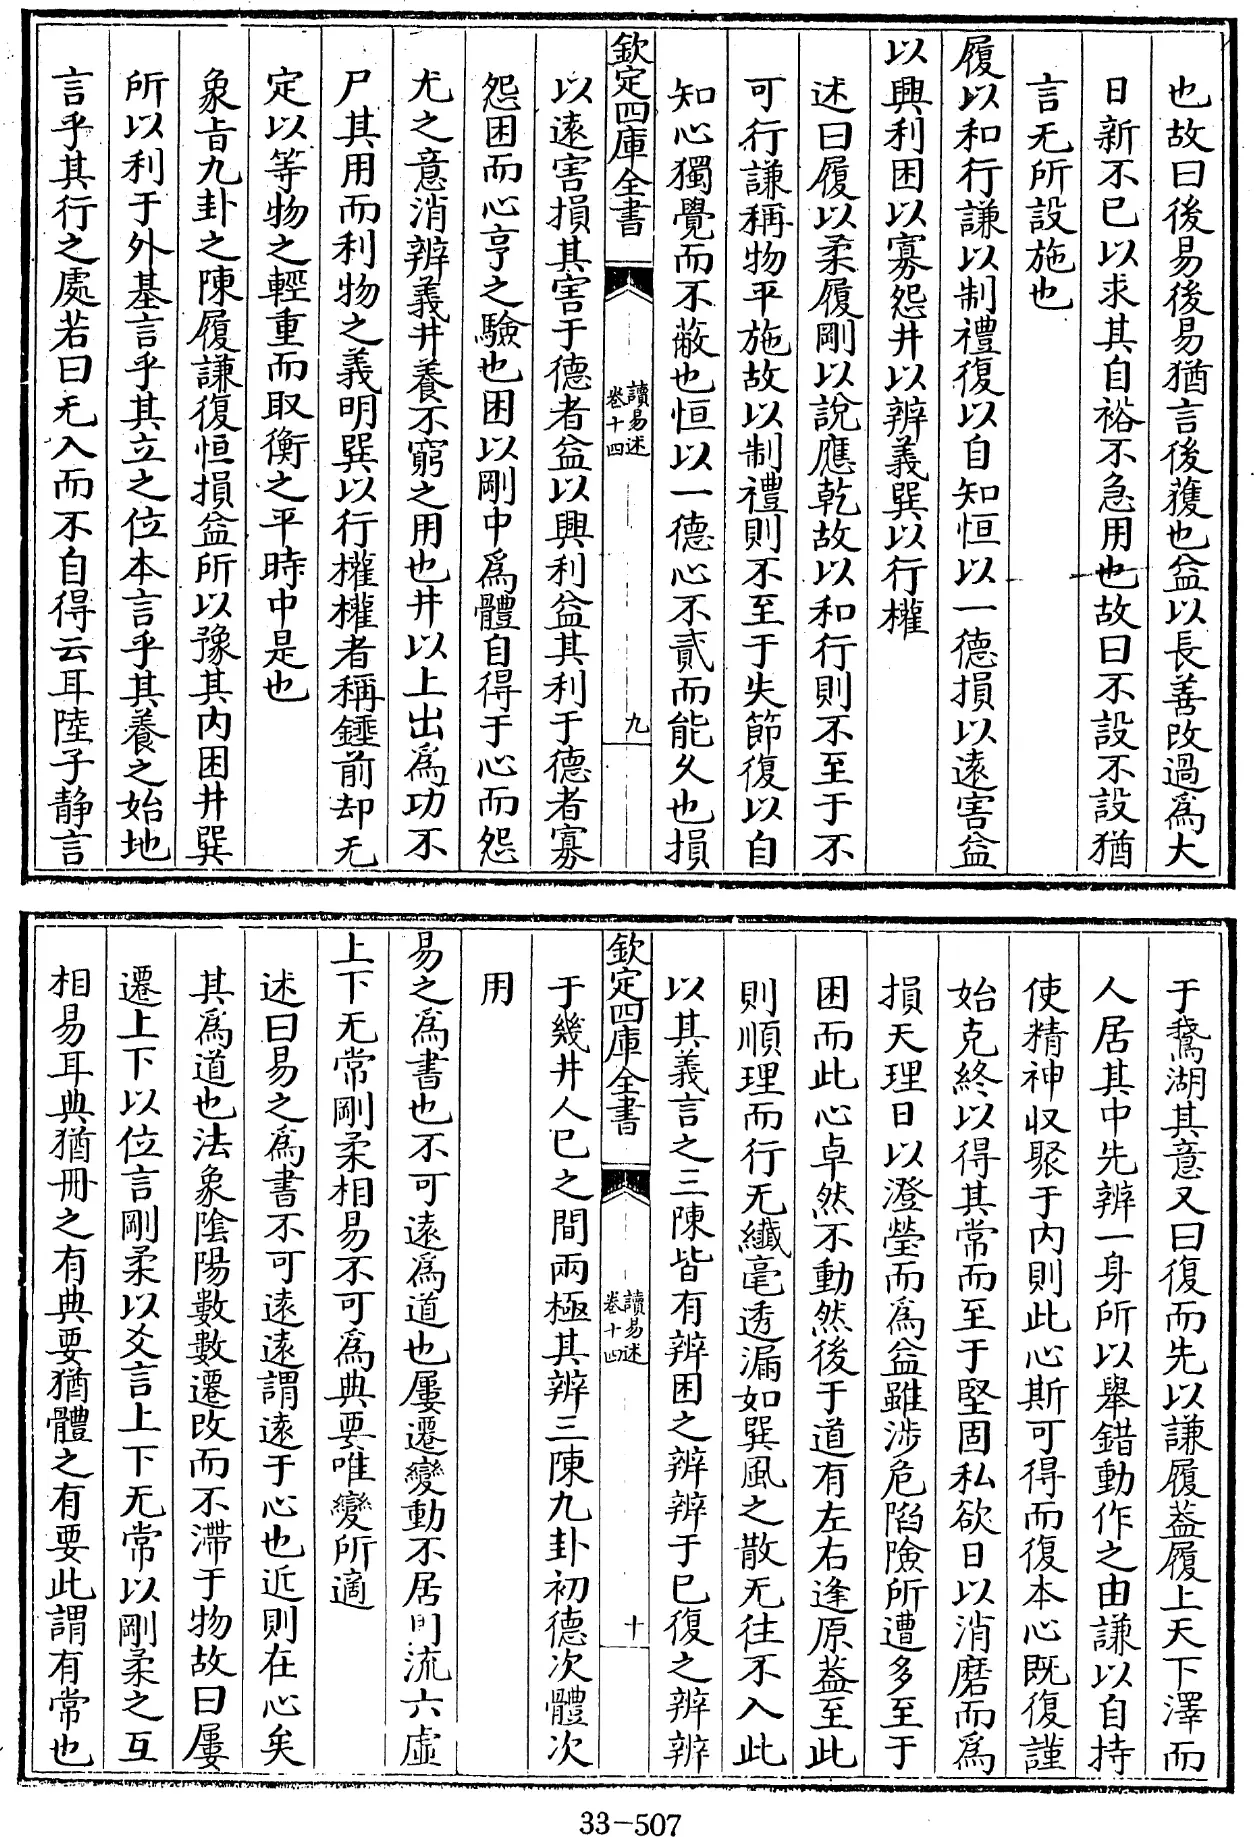 也故曰後易後易猶言後蓰也益以長善改過為大
日新不已以求其自裕不急用也故曰不設不設猶
言无所設施也
履以和行謙以制禮復以自知恒以一德損以遠害益
以興利困以寡怨井以辨義巽以行權
述曰履以柔履剛以說應乾故以和行則不至于不
可行謙稱物平施故以制禮則不至于失節復以自
知心獨覺而不蔽也恒以一德心不貳而能久也損
欽定四庫全書
讀易述
卷十四
九
以遠害損其害于德者益以興利益其利于德者寡
怨困而心亨之驗也困以剛中為體自得于心而怨
尤之意消辨義井養不窮之用也井以上出為功不
尸其用而利物之義明巽以行權權者稱錘前却无
定以等物之輕重而取衡之平時中是也
象旨九卦之陳履謙復恒損益所以豫其内困井巽
所以利于外基言乎其立之位本言乎其養之始地
言乎其行之處若曰无入而不自得云耳陸子静言
于鵞湖其意又曰復而先以謙履葢履上天下澤而
人居其中先辨一身所以舉錯動作之由謙以自持
使精神収聚于内則此心斯可得而復本心既復謹
始克終以得其常而至于堅固私欲日以消磨而為
損天理日以澄瑩而為益雖涉危陷險所遭多至于
困而此心卓然不動然後于道有左右逢原葢至此
則順理而行无纎毫透漏如巽風之散无往不入此
以其義言之三陳皆有辨困之辨辨于已復之辨辨
欽定四庫全書
讀易述
卷十四
十
于幾井人已之間兩極其辨三陳九卦初德次體次
用
易之為書也不可遠為道也屢遷變動不居周流六虛
上下无常剛柔相易不可為典要唯變所適
述曰易之為書不可遠遠謂遠于心也近則在心矣
其為道也法象陰陽數數遷改而不滯于物故曰屢
遷上下以位言剛柔以爻言上下无常以剛柔之互
相易耳典猶冊之有典要猶體之有要此謂有常也
33-507